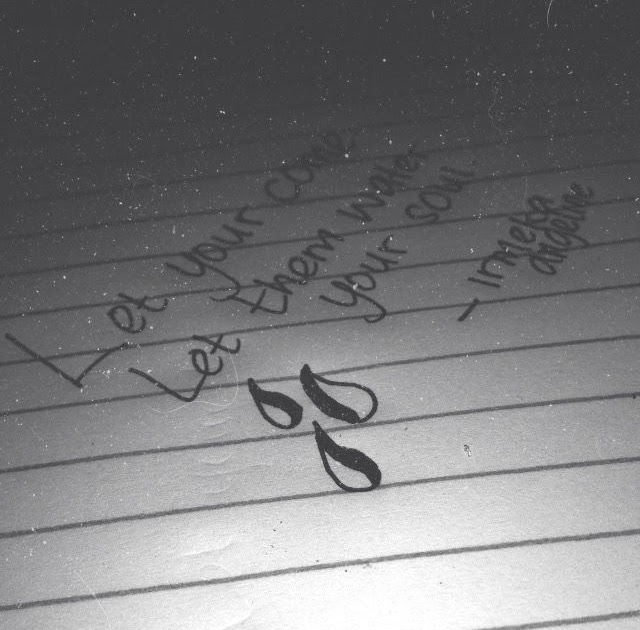 Let your come
Let them water
your soul
- Irmelba
angeline